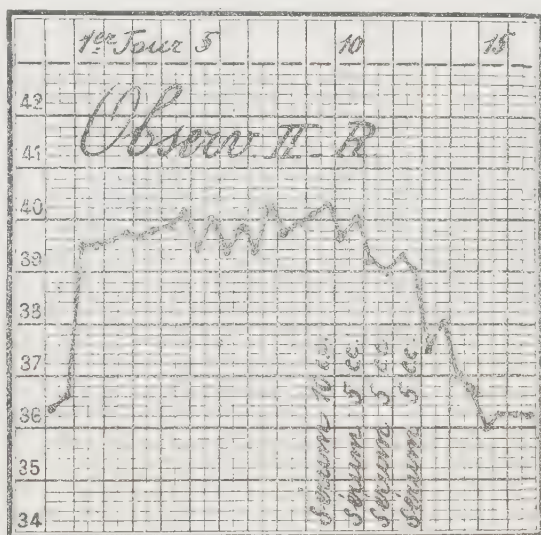 1er Jour 5 10 15
42
Observ II - R
41
40
39
38
37
36
35
34
Sérum 10 cc.
Sérum 5 cc.
Sérum 5 cc
Sérum 5 cc.